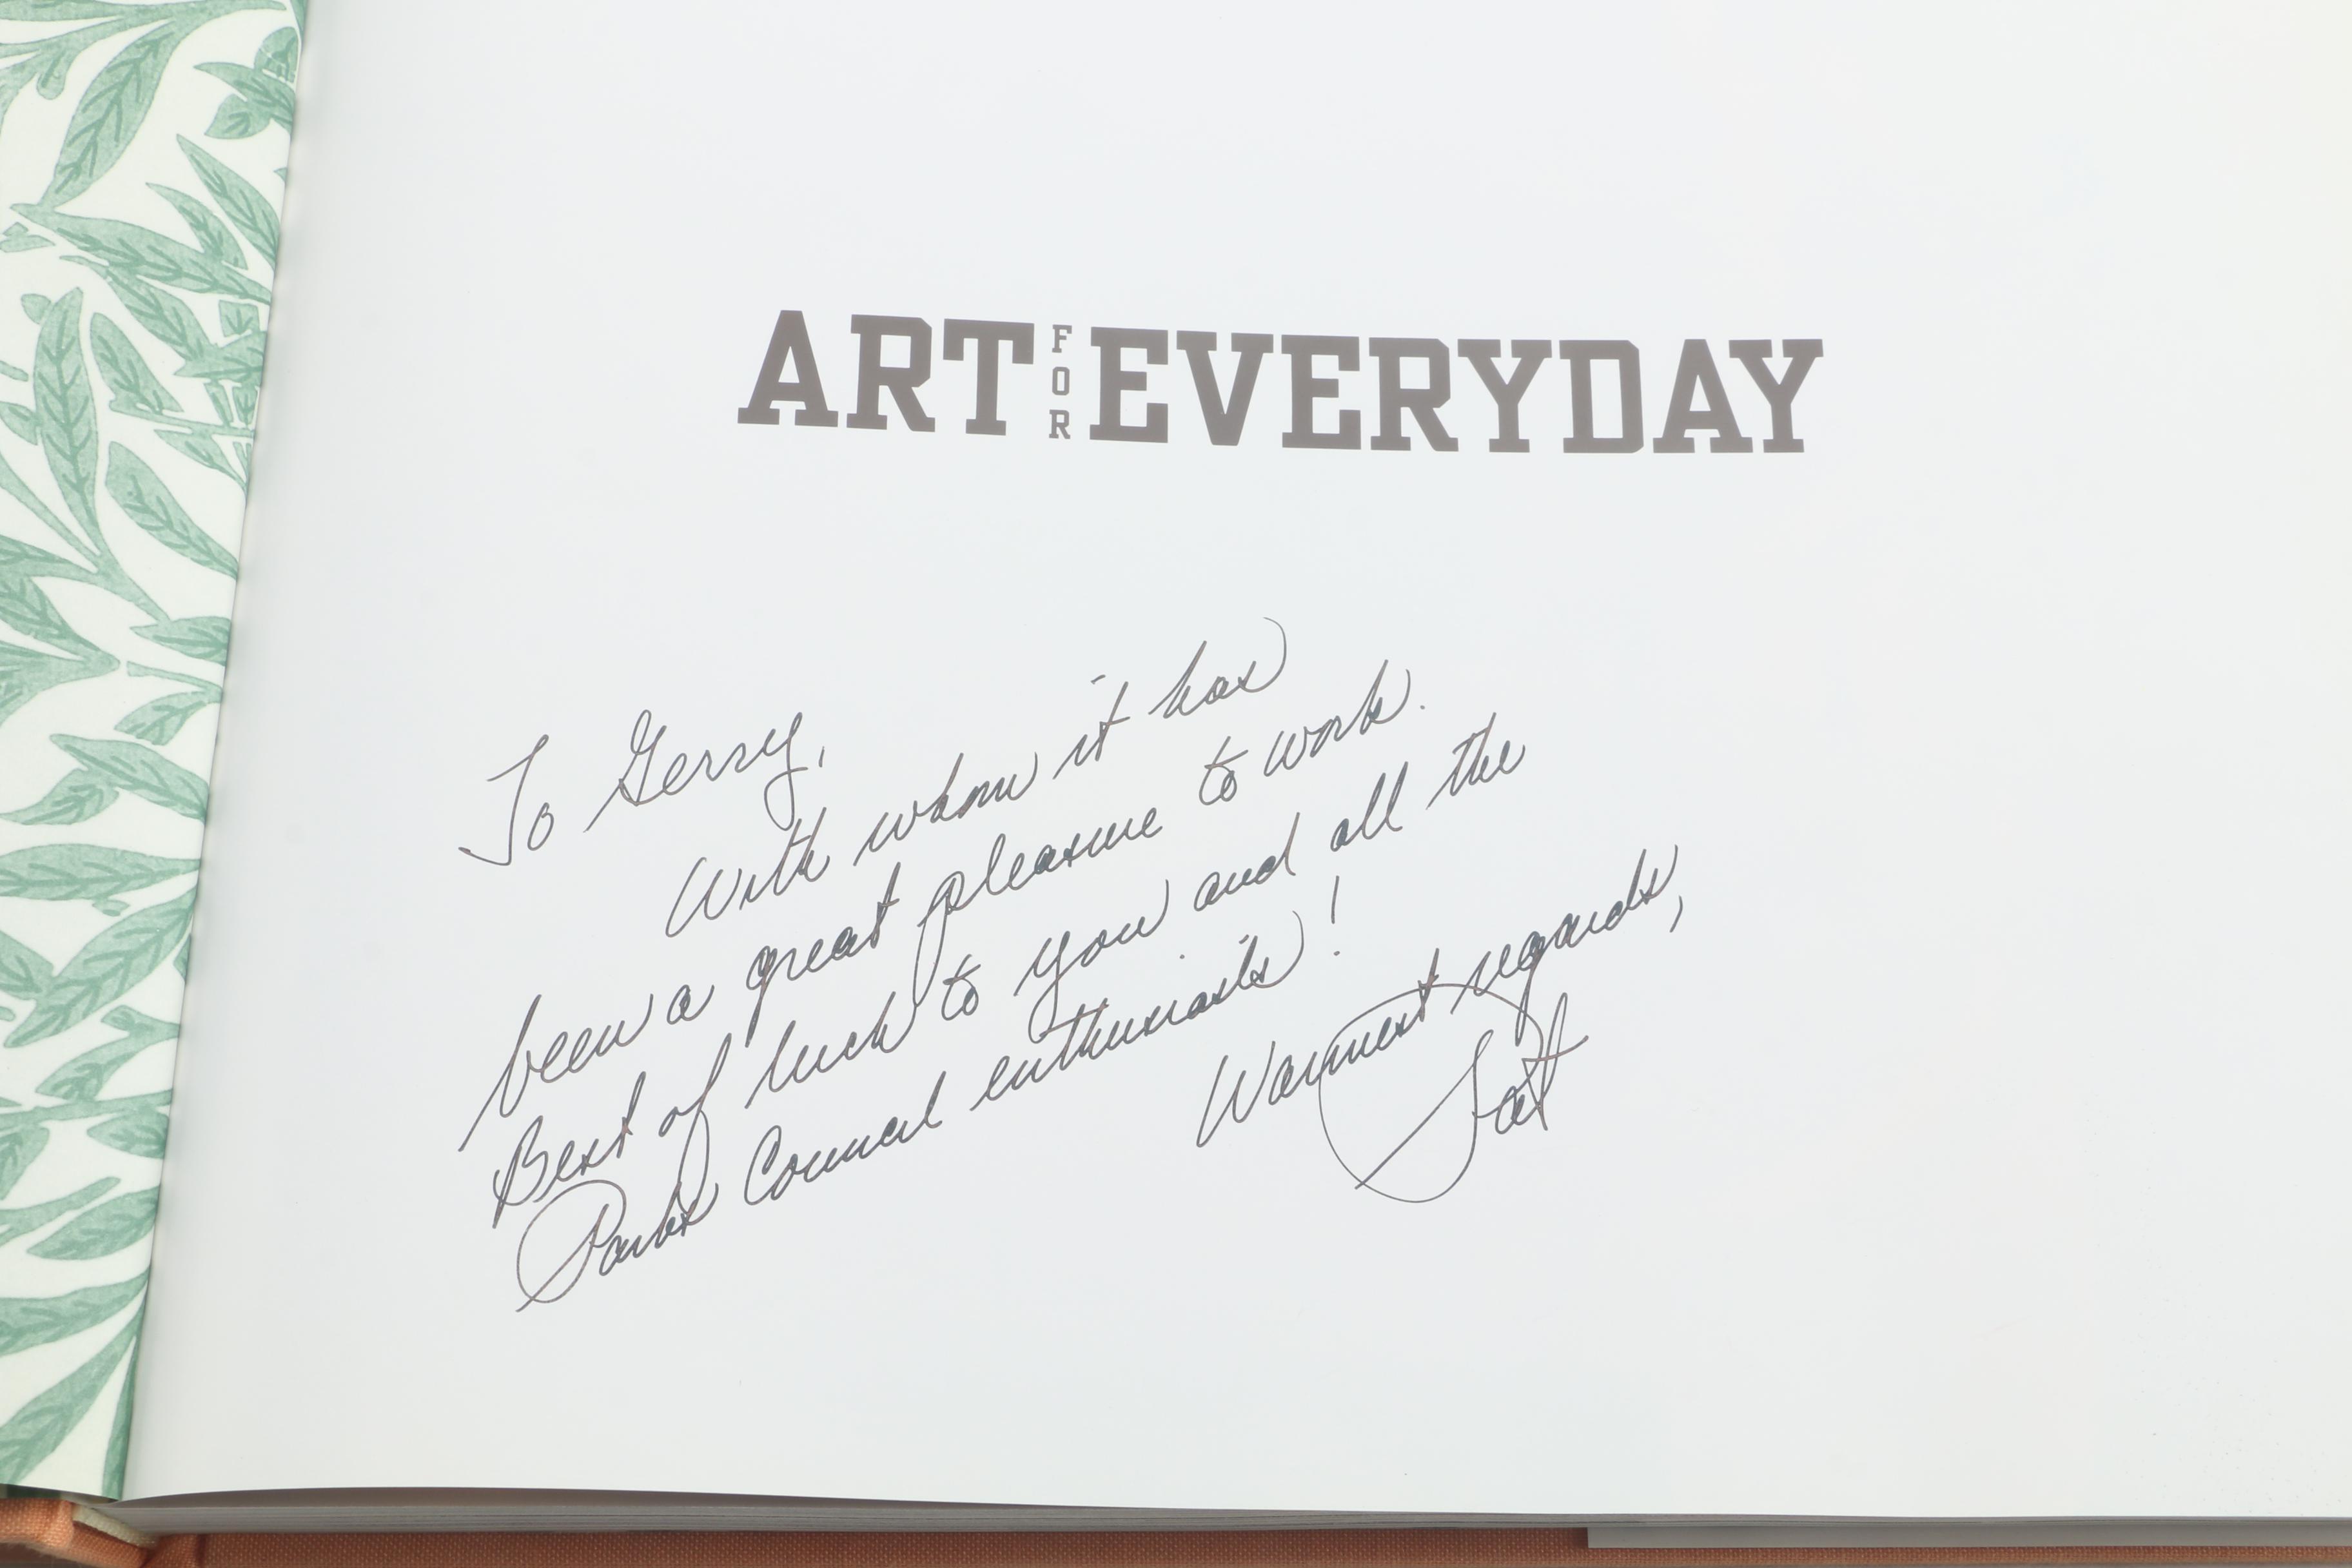 ART FOR EVERYDAY
To Gerry,
With whom it has
been a great pleasure to work.
Best of luck to you and all the
Parks Council enthusiasts!
Warmest regards,
Pat